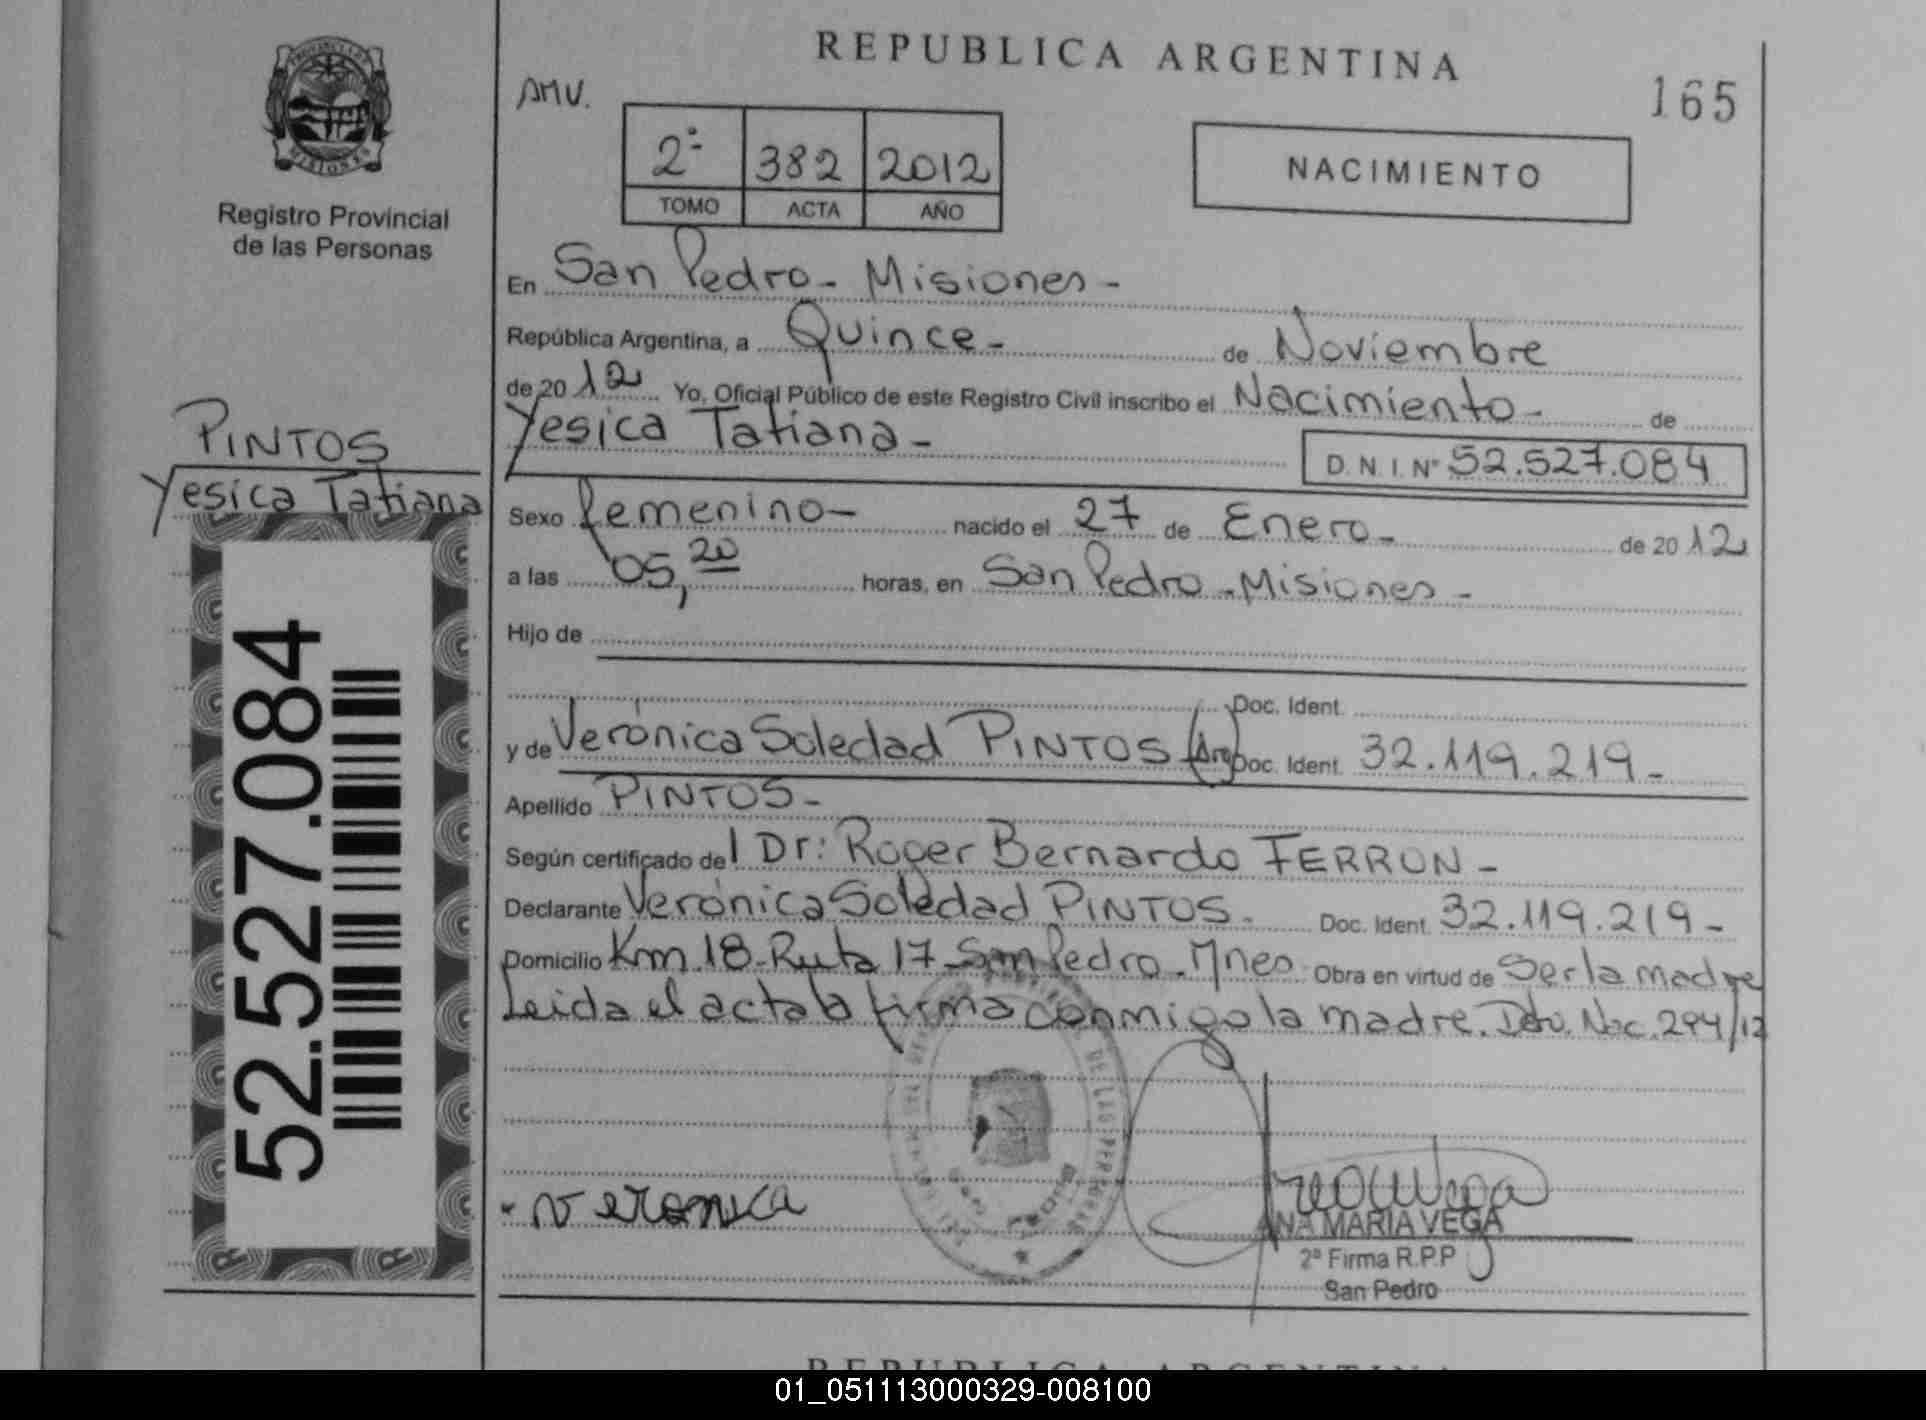 REPUBLICA ARGENTINA
AMV.
165
2º 382 2012
TOMO ACTA AÑO
NACIMIENTO
PROVINCIA DE
MISIONES
Registro Provincial
de las Personas
En San Pedro - Misiones -
República Argentina, a Quince - de Noviembre
de 2012 Yo, Oficial Público de este Registro Civil inscribo el Nacimiento - de
Yesica Tatiana -
D. N. I. Nº 52.527.084
PINTOS
Yesica Tatiana
52.527.084
Sexo femenino - nacido el 27 de Enero - de 2012
a las 05,20 horas, en San Pedro - Misiones -
Hijo de
Doc. Ident.
y de Verónica Soledad PINTOS (Arg) Doc. Ident. 32.119.219 -
Apellido PINTOS -
Según certificado del Dr: Roger Bernardo FERRON -
Declarante Verónica Soledad PINTOS - Doc. Ident. 32.119.219 -
Domicilio Km 18 - Ruta 17 - San Pedro - Mnes Obra en virtud de Ser la madre
Leida el acta la firma conmigo la madre. Dto. Nac. 294/12
DE LAS PERSONAS
Veronica
ANA MARIA VEGA
2ª Firma R.P.P
San Pedro
REPUBLICA ARGENTINA
01_051113000329-008100